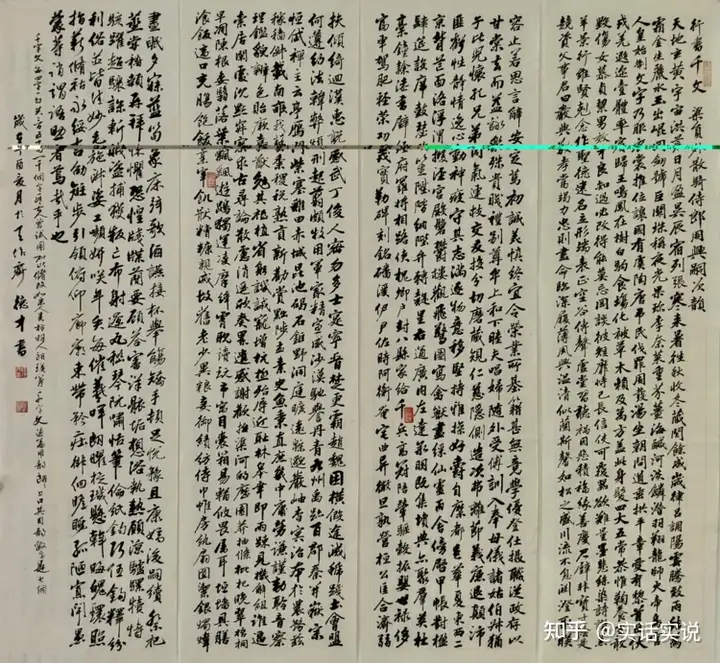 行書千文 梁員外散騎侍郎周興嗣次韻
天地玄黃宇宙洪荒日月盈昃辰宿列張寒來暑往秋收冬藏閏餘成歲律呂調陽雲騰致雨露結為
霜金生麗水玉出崐岡劍號巨闕珠稱夜光果珍李柰菜重芥薑海鹹河淡鱗潛羽翔龍師火帝鳥官
人皇始制文字乃服衣裳推位讓國有虞陶唐弔民伐罪周發殷湯坐朝問道垂拱平章愛育黎首臣伏
戎羌遐迩壹體率賓歸王鳴鳳在樹白駒食場化被草木賴及萬方蓋此身髮四大五常恭惟鞠養豈敢
毀傷女慕貞絜男效才良知過必改得能莫忘罔談彼短靡恃己長信使可覆器欲難量墨悲絲染詩讚羔
羊景行維賢克念作聖德建名立形端表正空谷傳聲虛堂習聽禍因惡積福緣善慶尺璧非寶寸陰是
競資父事君曰嚴與敬孝當竭力忠則盡命臨深履薄夙興溫凊似蘭斯馨如松之盛川流不息淵澄取暎
容止若思言辭安定篤初誠美慎終宜令榮業所基籍甚無竟學優登仕攝職從政存以
甘棠去而益詠樂殊貴賤禮別尊卑上和下睦夫唱婦隨外受傅訓入奉母儀諸姑伯叔猶
子比兒孔懷兄弟同氣連枝交友投分切磨箴規仁慈隱惻造次弗離節義廉退顛沛
匪虧性靜情逸心動神疲守真志滿逐物意移堅持雅操好爵自縻都邑華夏東西二
京背芒面洛浮渭據涇宮殿盤鬱樓觀飛驚圖寫禽獸畫綵仙靈丙舍傍啓甲帳對楹
肆筵設席鼓瑟吹笙陞階納陛弁轉疑星右通廣內左達承明既集墳典亦聚群英杜
稾鍾隸漆書壁經府羅將相路俠槐卿戶封八縣家給千兵高冠陪輦驅轂振纓世祿侈
富車駕肥輕策功茂實勒碑刻銘磻溪伊尹佐時阿衡奄宅曲阜微旦孰營桓公匡合濟弱
扶傾綺迴漢惠說感武丁俊乂密勿多士寔寧晉楚更霸趙魏困橫假途滅虢踐土會盟
何遵約法韓弊煩刑起翦頗牧用軍最精宣威沙漠馳譽丹青九州禹跡百郡秦并嶽宗
恆岱禪主云亭鴈門紫塞雞田赤城昆池碣石鉅野洞庭曠遠緜邈巖岫杳冥治本於農務茲
稼穡俶載南畝我藝黍稷稅熟貢新勸賞黜陟孟軻敦素史魚秉直庶幾中庸勞謙謹敕聆音察
理鑒貌辨色貽厥嘉猷勉其祗植省躬譏誡寵增抗極殆辱近恥林皋幸即兩疏見機解組誰逼
索居閑處沉默寂寥求古尋論散慮逍遙欣奏累遣慼謝歡招渠荷的歷園莽抽條枇杷晚翠梧桐
早凋陳根委翳落葉飄颻遊鵾獨運凌摩絳霄耽讀玩市寓目囊箱易輶攸畏屬耳垣牆具膳
飡飯適口充腸飽飫烹宰飢猒糟糠親戚故舊老少異糧妾御績紡侍巾帷房紈扇圓絜銀燭煒煌
晝眠夕寐藍筍象床弦歌酒讌接杯舉觴矯手頓足悅豫且康嫡後嗣續祭祀
蒸嘗稽顙再拜悚懼恐惶牋牒簡要顧答審詳骸垢想浴執熱願涼驢騾犢特
駭躍超驤誅斬賊盜捕獲叛亡布射遼丸嵇琴阮嘯恬筆倫紙鈞巧任釣釋紛
利俗並皆佳妙毛施淑姿工嚬妍咲年矢每催羲暉朗曜璇璣懸斡晦魄環照
指薪脩祜永綏吉劭矩步引領俯仰廊廟束帶矜莊徘徊瞻眺孤陋寡聞愚
蒙等誚謂語助者焉哉乎也
德才書
知乎 @实话实说